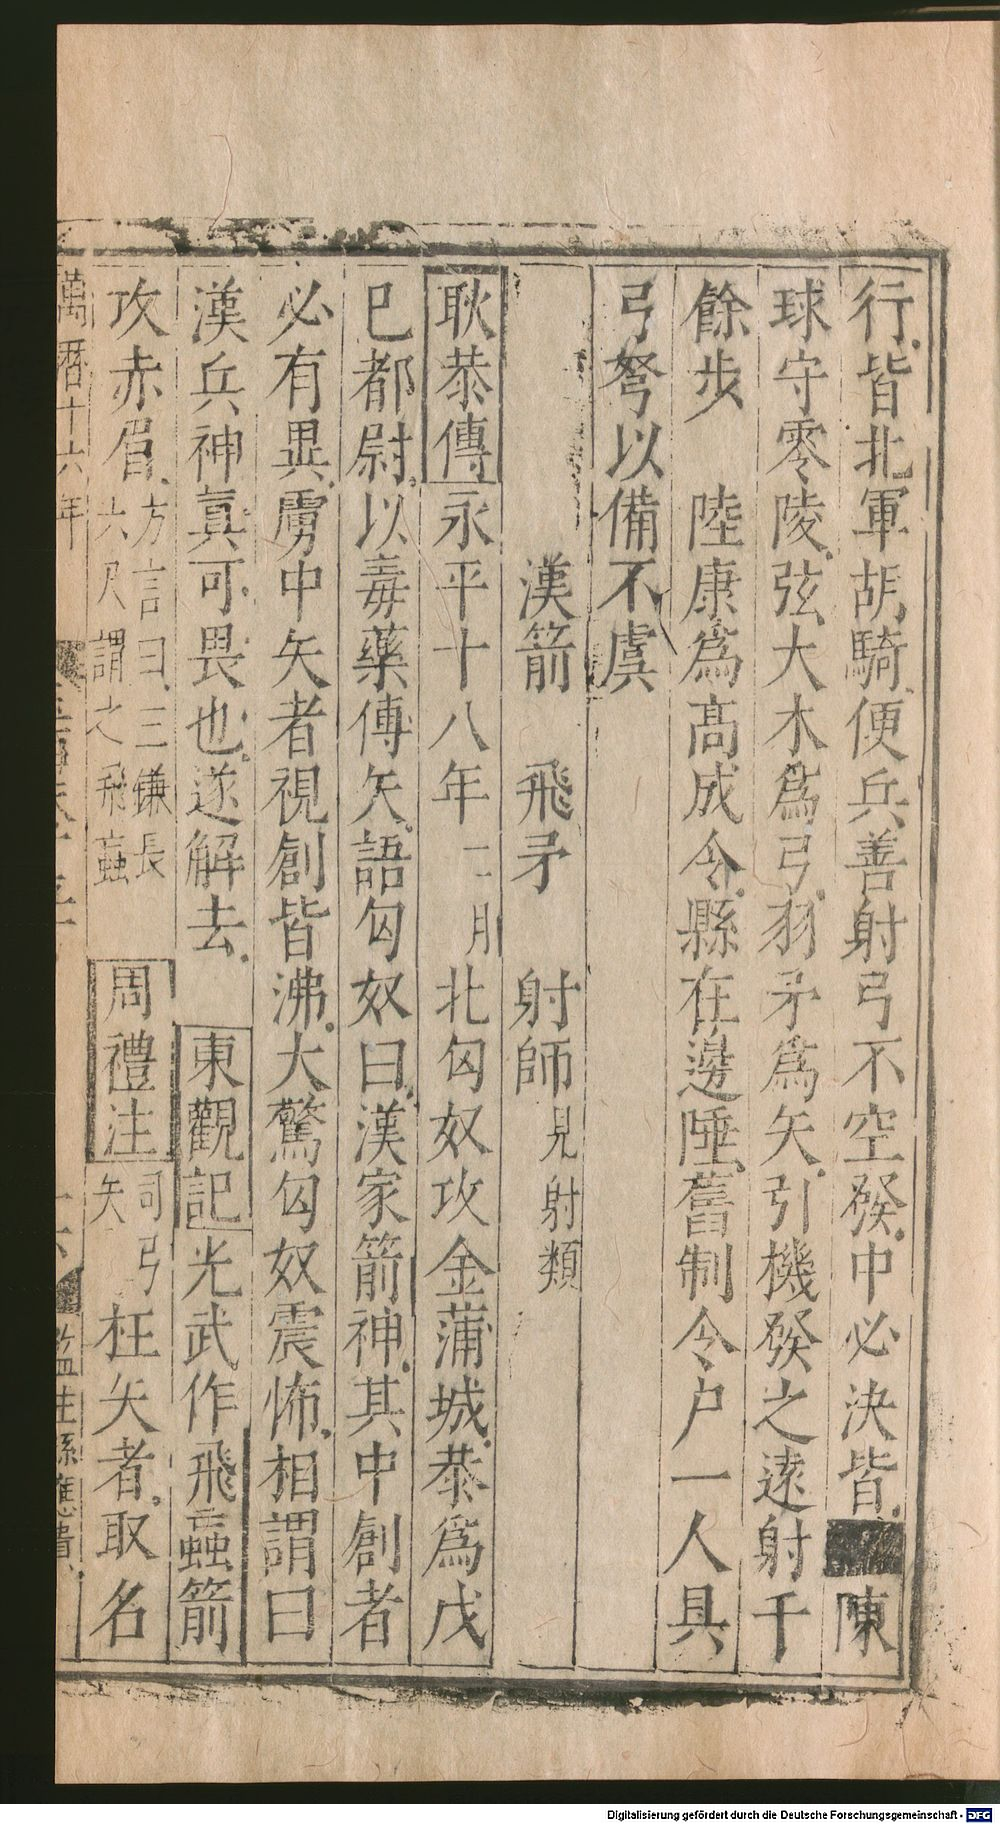 行皆北軍胡騎便兵善射弓不空發中必決皆陳
球守零陵弦大木爲弓羽矛爲矢引機發之遠射千
餘步　陸康爲高成令縣在邊陲舊制令户一人具
弓弩以備不虞
漢箭　飛矛　射師見射類
耿恭傳永平十八年二月北匈奴攻金蒲城恭爲戊
巳都尉以毒藥傅矢語匈奴曰漢家箭神其中創者
必有異虜中矢者視創皆沸大驚匈奴震怖相謂曰
漢兵神真可畏也遂解去　東觀記光武作飛蝱箭
攻赤眉方言曰三鐮長六尺謂之飛蝱　周禮注司弓矢枉矢者取名
萬曆十六年　監生孫應
Digitalisierung gefördert durch die Deutsche Forschungsgemeinschaft - DFG